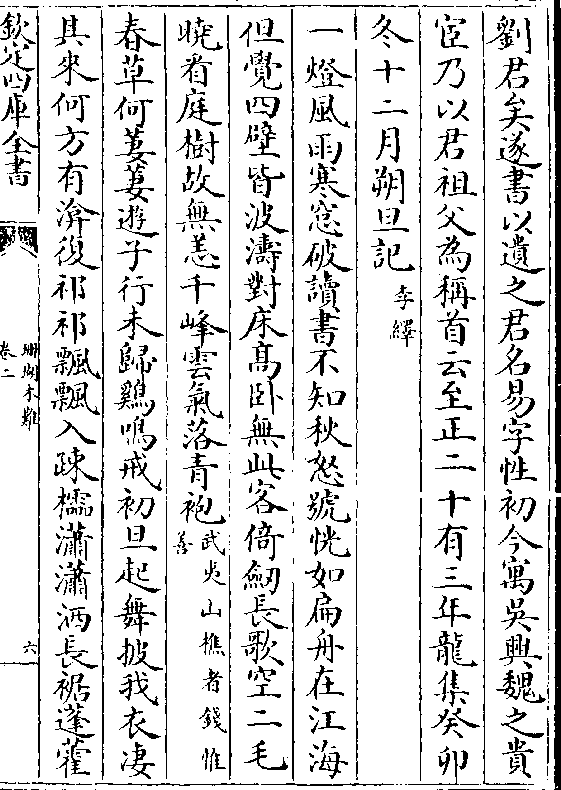 劉君矣遂書以遺之君名易字性初今寓吳興魏之貴
宦乃以君祖父為稱首云至正二十有三年龍集癸卯
冬十二月朔旦記 李繹
一燈風雨寒窓破讀書不知秋怒號恍如扁舟在江海
但覺四壁皆波濤對床髙卧無此客倚劒長歌空二毛
曉看庭樹故無恙千峰雲氣落青袍 武夷山樵者錢惟善
春草何萋萋遊子行未歸鷄鳴戒初旦起舞披我衣凄
其來何方有渰復祁祁飄飄入疎櫺瀟瀟洒長裾蓬藿
欽定四庫全書
珊瑚木難
卷二
六